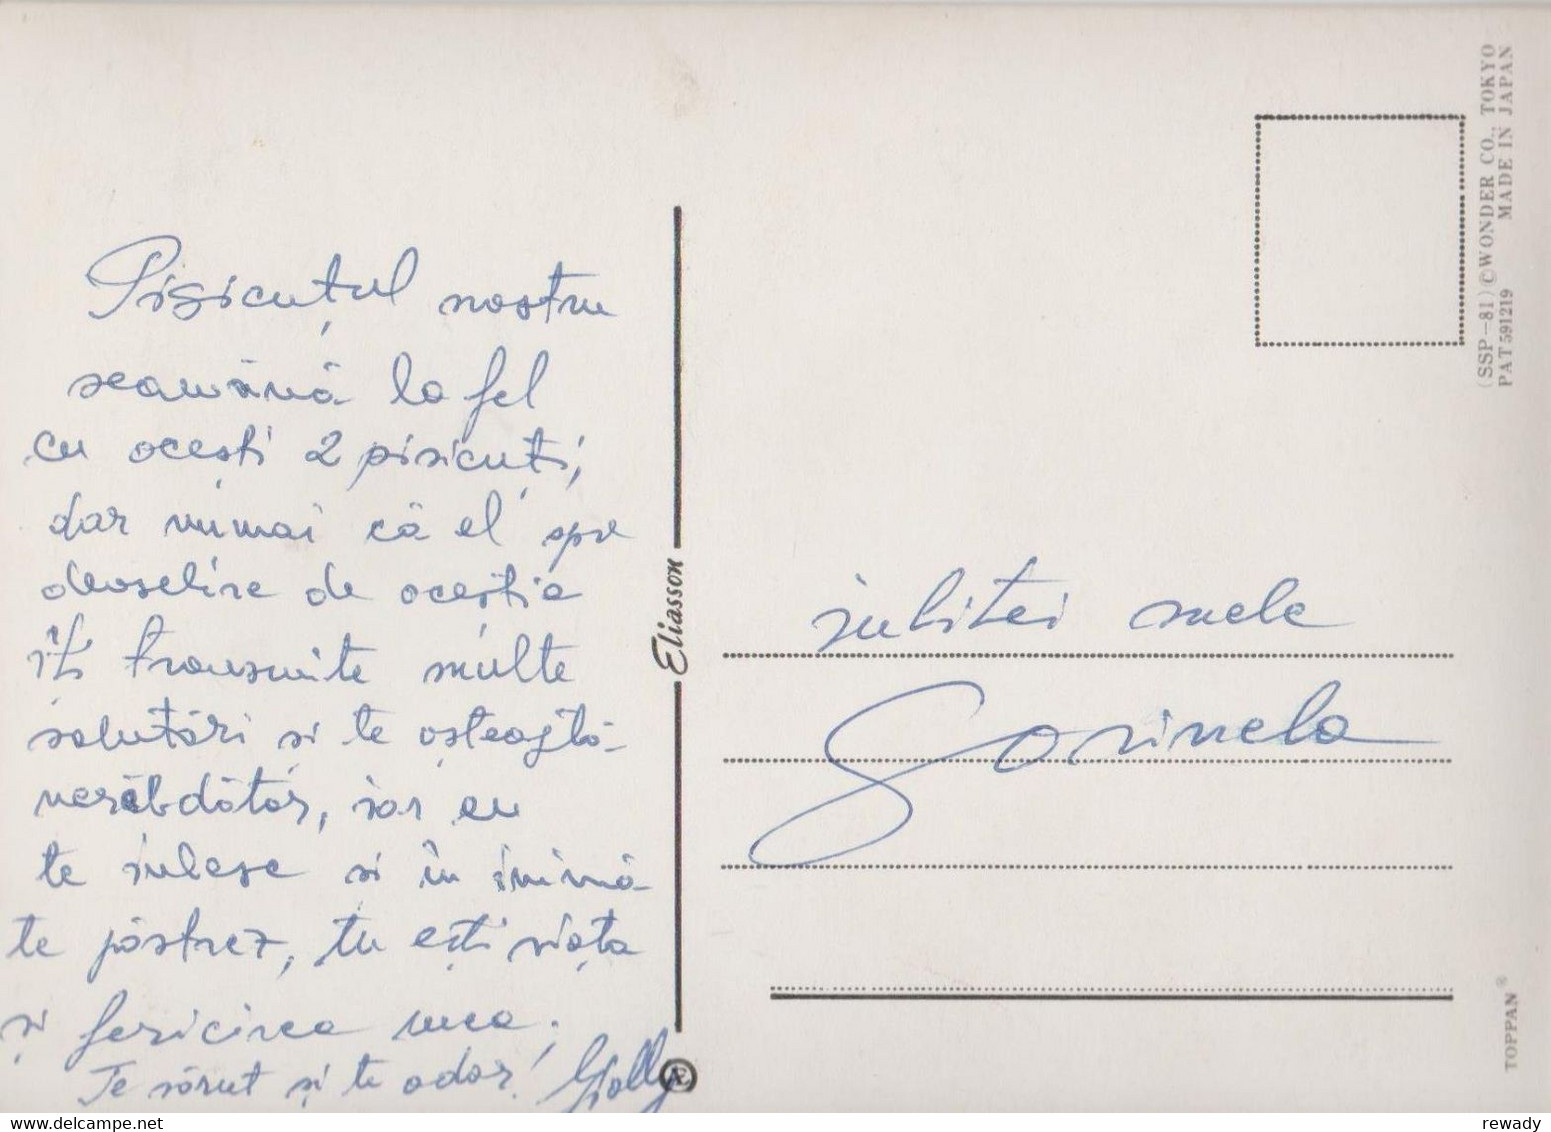 Pisicuțul nostru
seamănă la fel
cu acești 2 pisicuți,
dar numai că el spre
deosebire de aceștia
îți transmite multe
salutări si te așteaptă
nerăbdător, iar eu
te iubesc si în inimă
te păstrez, tu ești viața
și fericirea mea,
Te sărut și te ador!
iubitei mele
Sorinela
Eliasson
(SSP-81) ©WONDER CO., TOKYO
PAT 591219 MADE IN JAPAN
TOPPAN®
delcampe.net
rewady